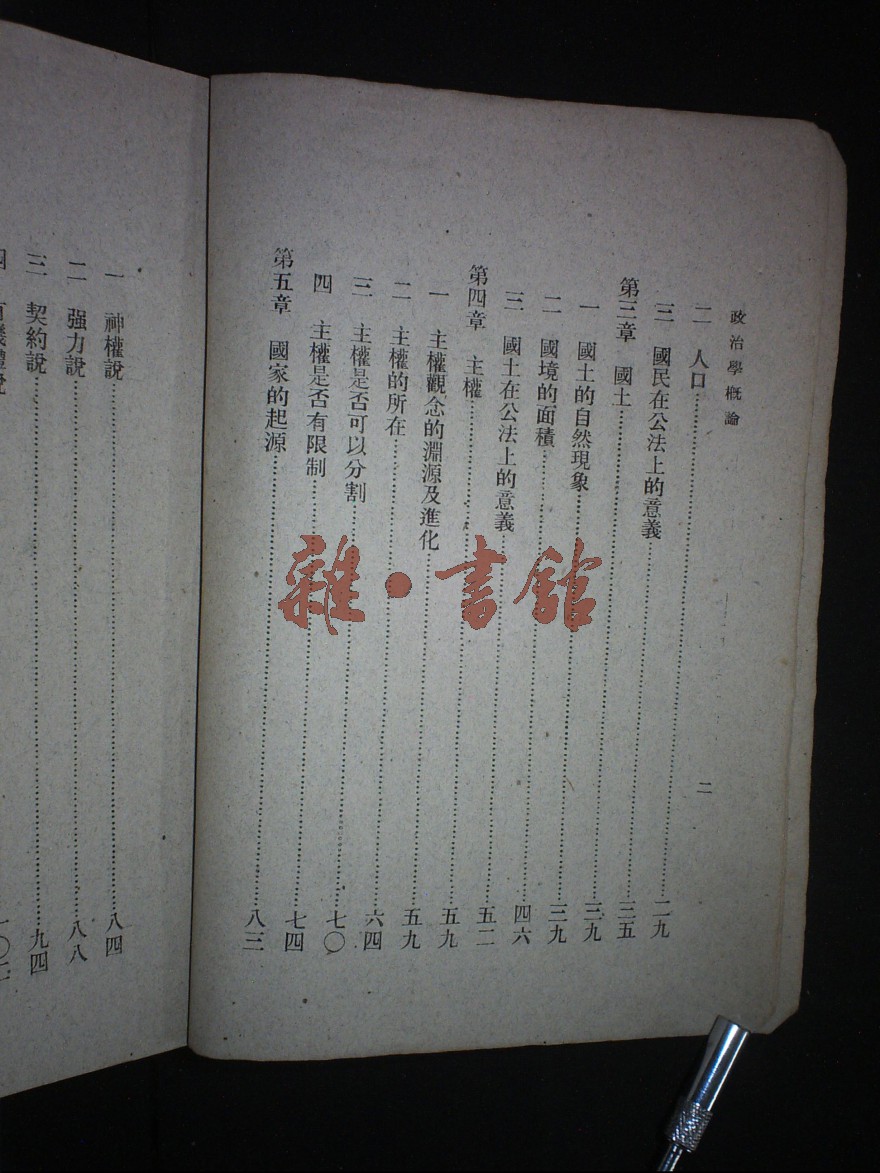 政治學概論
二
二 人口……二九
三 國民在公法上的意義……三五
第三章 國土……三九
一 國土的自然現象……三九
二 國境的面積……四六
三 國土在公法上的意義……五二
第四章 主權……五九
一 主權觀念的淵源及進化……五九
二 主權的所在……六四
三 主權是否可以分割……七〇
四 主權是否有限制……七四
第五章 國家的起源……八三
一 神權說……八四
二 强力說……八八
三 契約說……九四
雜·書館